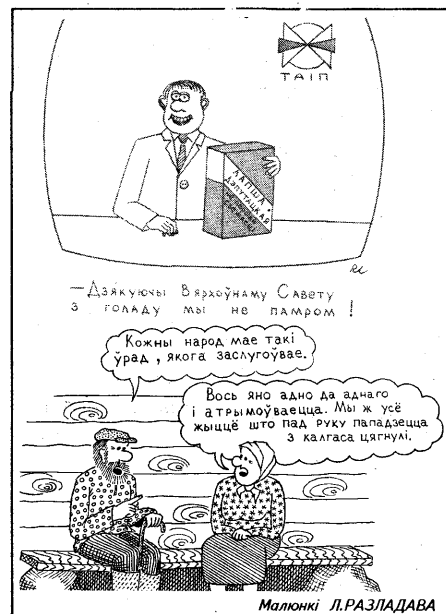 ТАІП
ЛАПША
ДЭПУТАЦКАЯ
—Дзякуючы Вярхоўнаму Савету
з голаду мы не памром!
Кожны народ мае такі
ўрад, якога заслугоўвае.
Вось яно адно да аднаго
і атрымоўваецца. Мы ж усё
жыццё што пад руку пападзецца
з калгаса цягнулі.
Малюнкі Л.РАЗЛАДАВА